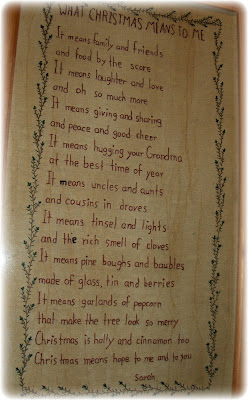 WHAT CHRISTMAS MEANS TO ME
It means family and friends
and food by the score
It means laughter and love
and oh so much more
It means giving and sharing
and peace and good cheer
It means hugging your Grandma
at the best time of year
It means uncles and aunts
and cousins in droves
It means tinsel and lights
and the rich smell of cloves
It means pine boughs and baubles
made of glass, tin and berries
It means garlands of popcorn
that make the tree look so merry
Christmas is holly and cinnamon too
Christmas means hope to me and to you
Sarah